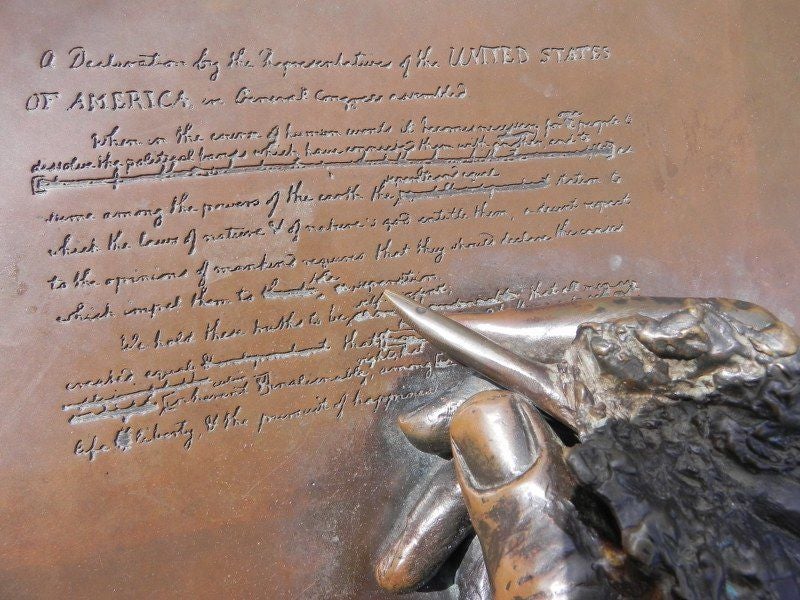 A Declaration by the Representatives of the UNITED STATES
OF AMERICA, in General Congress assembled
When in the course of human it becomes necessary for people to
dissolve the political bands which have connected them with another, and to
as
separate and equal
sume among the powers of the earth the station to
which the laws of nature & of nature's god entitle them, a decent respect
to the opinions of mankind requires that they should declare the causes
which impel them to the separation.
self
We hold these truths to be that all men are
created equal & independent that
rights that
inherent & inalienable among
life & liberty, & the pursuit of happiness